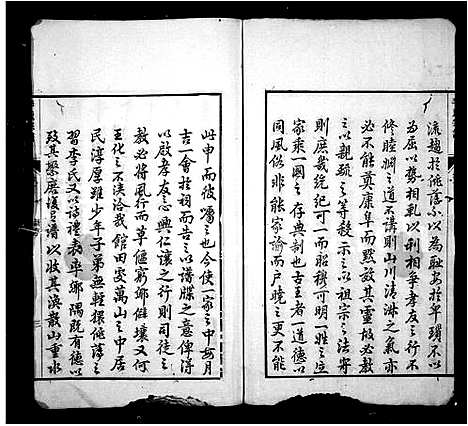 流趨於佻蕩不以為耻安於卑瑣不以
為屈以勢相亂以刑相爭孝友之行不
修睦婣之道不講則山川清淋之氣亦
必不能莫康阜而黙敚其靈故必教
之以親疏之等殺示之以祖宗之法寄
則庶幾統紀可一而昭穆可明則以一
家乘一國之存典制也古王者一道德以
同風俗非能家諭而户曉之更不能
此申而彼囑之也今使一家之中每月
吉一會於祠而告之以譜牒之意俾得
以啟孝友之興仁讓之行則司徒之
教必將風行而草偃窮鄉僻壤又何
王化之不浹洽哉館田雯萬山之中居
民淳厚雖少年子弟無輕獧佻蕩之
習李氏又以詩禮表率鄉隅既有德以
致其漸磨復有譜以收其渙散山重水